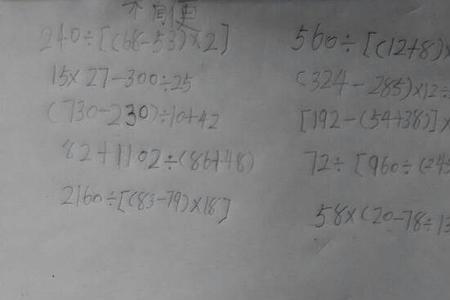 240÷[(68-53)×2]
15×27-300÷25
(730-230)÷10+42
82+1102÷(86+48)
2160÷[(83-79)×18]
560÷[(12+8)×
(324-285)×12÷
[192-(54+38)]×
72÷[960÷(245
58×(20-78÷13